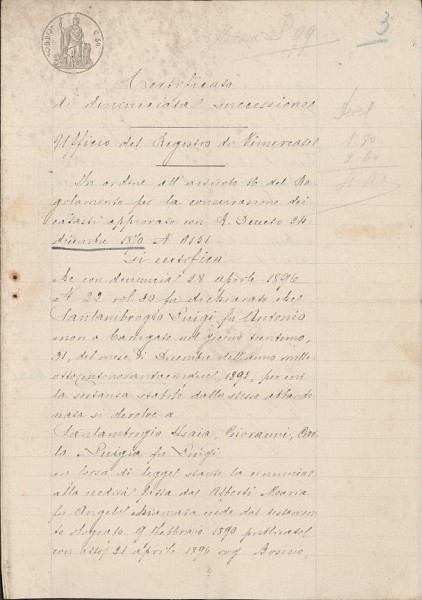 3
Certificato
di denunciata successione
Ufficio del Registro di Vimercate
In ordine all'articolo 16 del Re
golamento per la conservazione dei
catasti approvato con R. Decreto 24
dicembre 1870 N 6151
Si certifica
che con denuncia 28 aprile 1896
N 22 vol 30 fu dichiarato che
Santambrogio Luigi fu Antonio
morì a Carugate nel giorno trentuno,
31, del mese di Dicembre dell'anno mille
otto 1895, per cui
la sostanza stabile dallo stesso abbando
nata si devolve a
Santambrogio Isaia, Giovanni, Car
la Luigia fu Luigi
in forza di legge stante la rinuncia
alla medesima fatta dal Alberti Maria
fu Angelo chiamata erede dal testamen
to olografo 9 Febbraio 1890 pubblicato
con atto 21 aprile 1896 rog